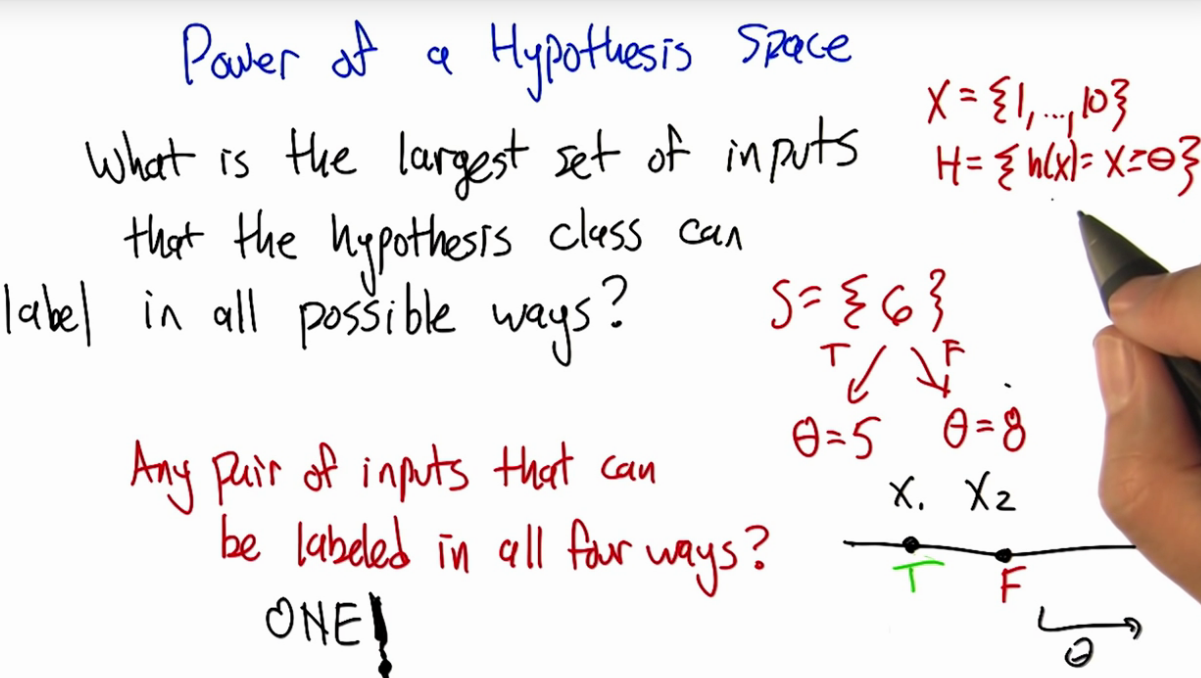 Power of a Hypothesis Space
What is the largest set of inputs
that the hypothesis class can
label in all possible ways?
X = {1, ..., 10}
H = { h(x) = X ≥ θ }
S = { 6 }
T F
θ = 5 θ = 8
Any pair of inputs that can
be labeled in all four ways?
ONE!
X₁ X₂
T F
θ